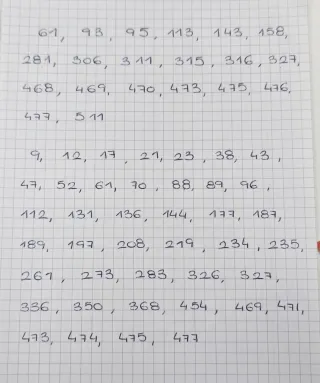 61, 93, 95, 113, 143, 158,
281, 306, 311, 315, 316, 327,
468, 469, 470, 473, 475, 476,
477, 511
9, 12, 17, 21, 23, 38, 43,
47, 52, 61, 70, 88, 89, 96,
112, 131, 136, 144, 177, 187,
189, 197, 208, 219, 234, 235,
261, 273, 283, 326, 327,
336, 350, 368, 454, 469, 471,
473, 474, 475, 477